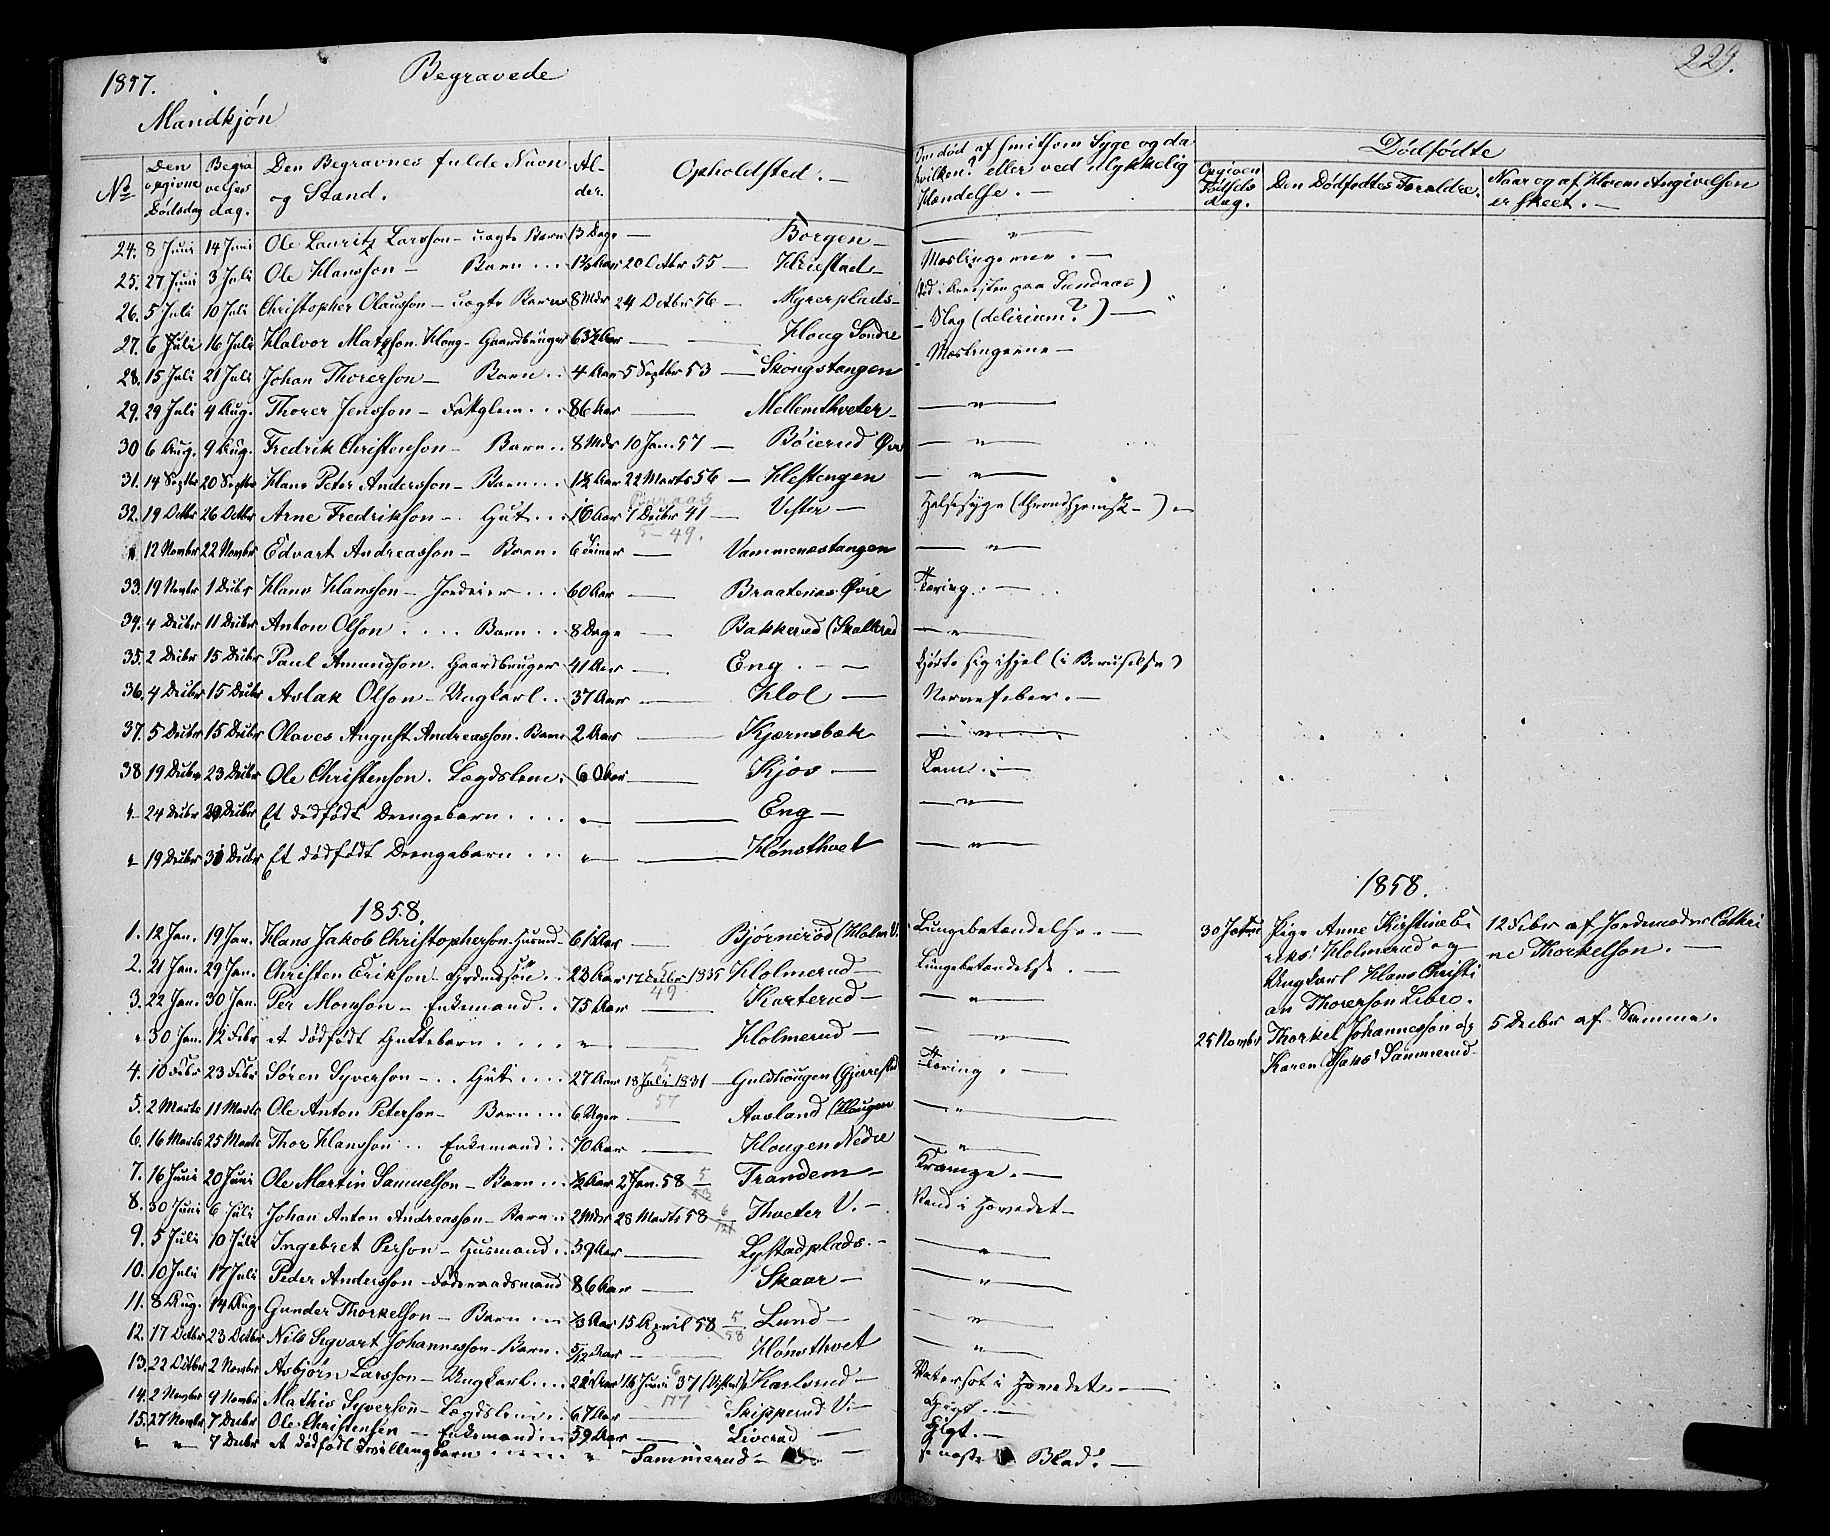 1857.
Begravede
229.
Mandkjøn
No
Den opgivne Dødsdag
Begravelses dag.
Den Begravnes fulde Navn og Stand.
Alder.
Opholdsted.
Om død af smitsom Syge og da hvilken? eller ved ulykkelig Hændelse.
Dødfødte
Opgiven Fødsels dag.
Den Dødfødtes Forældre.
Naar og af Hvem Angivelsen er skeet.
24. 8 Juni 14 Juni Ole Lauritz Larsson uægte Barn 13 Dage Borgen
25. 27 Juni 3 Juli Ole Hansson Barn 20 Octbr 55 Meslingerne
26. 5 Juli 10 Juli Christopher Olausson uægte Barn 8 Mdr 24 Octbr 56 Myrerplads
27. 6 Juli 16 Juli Halvor Haug Gaardbruger Haug Søndre Slag (delirium?)
28. 15 Juli 21 Juli Johan Thorerson Barn 4 Aar 5 Septbr 53 Skougstangen Meslingerne
29. 29 Juli 4 Aug. Thorer Jensson Fattiglem 86 Aar Mellemthveter
30 6 Aug. 9 Aug. Fredrik Christenson Barn 8 Mdr 10 Jan. 57 Bøierud Øvre
31. 14 Septbr 20 Septbr Hans Peter Andersson Barn 1½ Aar 22 Marts 56 Hestengen
32. 19 Octbr 26 Octbr Arne Fredrikson Gut 16 Aar 7 Decbr 41 Vister Halssyge
5-49.
" 12 Novembr 22 Novembr Edvart Andreasson Barn 6 Timer Vammenæstangen
33. 19 Novembr 1 Decbr Hans Hansson Jordeier 60 Aar Braatenas Øvre Tæring.
34. 4 Decbr 11 Decbr Anton Olson Barn 8 Dage Bakkerud
35. 2 Decbr 15 Decbr Paul Amundson. Gaardbruger 41 Aar Eng Kjørte sig ihjel (i Beruselse)
36. 4 Decbr 15 Decbr Aslak Olson Ungkarl 37 Aar Hol Nervefeber.
37. 5 Decbr 15 Decbr Olaves August Andreasson. Barn 2 Aar Kjærnsbæk
38 19 Decbr 23 Decbr Ole Christenson. Lægdslem. 60 Aar Kjos Lam.
" 24 Decbr 29 Decbr Et dødfødt Drengebarn Eng
" 19 Decbr Decbr Et dødfødt Drengebarn Hønsthvet
1858.
1858.
1. 12 Jan. 19 Jan. Hans Jakob Christopherson. Husmd 61 Aar Bjørnerød (Holm V. Lungebetændelse.
2. 21 Jan. 29 Jan. Christen Erikson 23 Aar 17 Decbr 1835 Holmerud Lungebetændelse.
3. 22 Jan. 30 Jan. Per Monsson Enkemand 75 Aar Karterud
" 30 Jan. 12 Febr et dødfødt Guttebarn Holmerud
4. 10 Febr 23 Febr Søren Syverson Gut 27 Aar 18 Juli 1831 Guldhougen Tæring.
57
5. 2 Marts 11 Marts Ole Anton Peterson Barn 6 Uger Aasland (Haugen
6. 16 Marts 25 Marts Thor Hansson Enkemand 70 Aar Haugen Nedre
7. 16 Juni 20 Juni Ole Martin Samuelson Barn ½ Aar 2 Jan. 58 Trandem Krampe.
8. 30 Juni 6 Juli Johan Anton Andreasson Barn 2 Mdr 28 Marts 58 Thveter V. Vand i Hovedet
9. 5 Juli 10 Juli Ingebret Person Husmand 59 Aar Lystadplads.
10. 10 Juli 17 Juli Peder Andersson Føderaadsmand 86 Aar Skaar
11. 8 Aug. 14 Aug. Gunder Thorkelson Barn ⅓ Aar 15 April 58 Lund
12. 17 Octbr 23 Octbr Nils Sigvart Johannesson Barn. 5/12 Aar Hønsthvet
13. 22 Octbr 2 Novembr Asbjørn Larsson Ungkarl 16 Juni 37 Karlsrud Vatersot i Hovedet.
14. 2 Novembr 9 Novembr Mathis Syverson Lægdslem 67 Aar Skipperud V.
15. 27 Novembr 7 Decbr Ole Christensen Enkemand 59 Aar Liverud Gigt.
" " 7 Decbr et dødfødt Tvillingbarn Sammerud Blad.
30 Pige Anne Kirstine E-
riks' Holmerud og
Ungkarl Hans Christi
an Thorerson Libro.
12 Febr af Jordemoder Cathri
ne Thorkelson.
25 Novembr Thorkel Johannesson og
Karen Sammerud
5 Decbr af Samme.